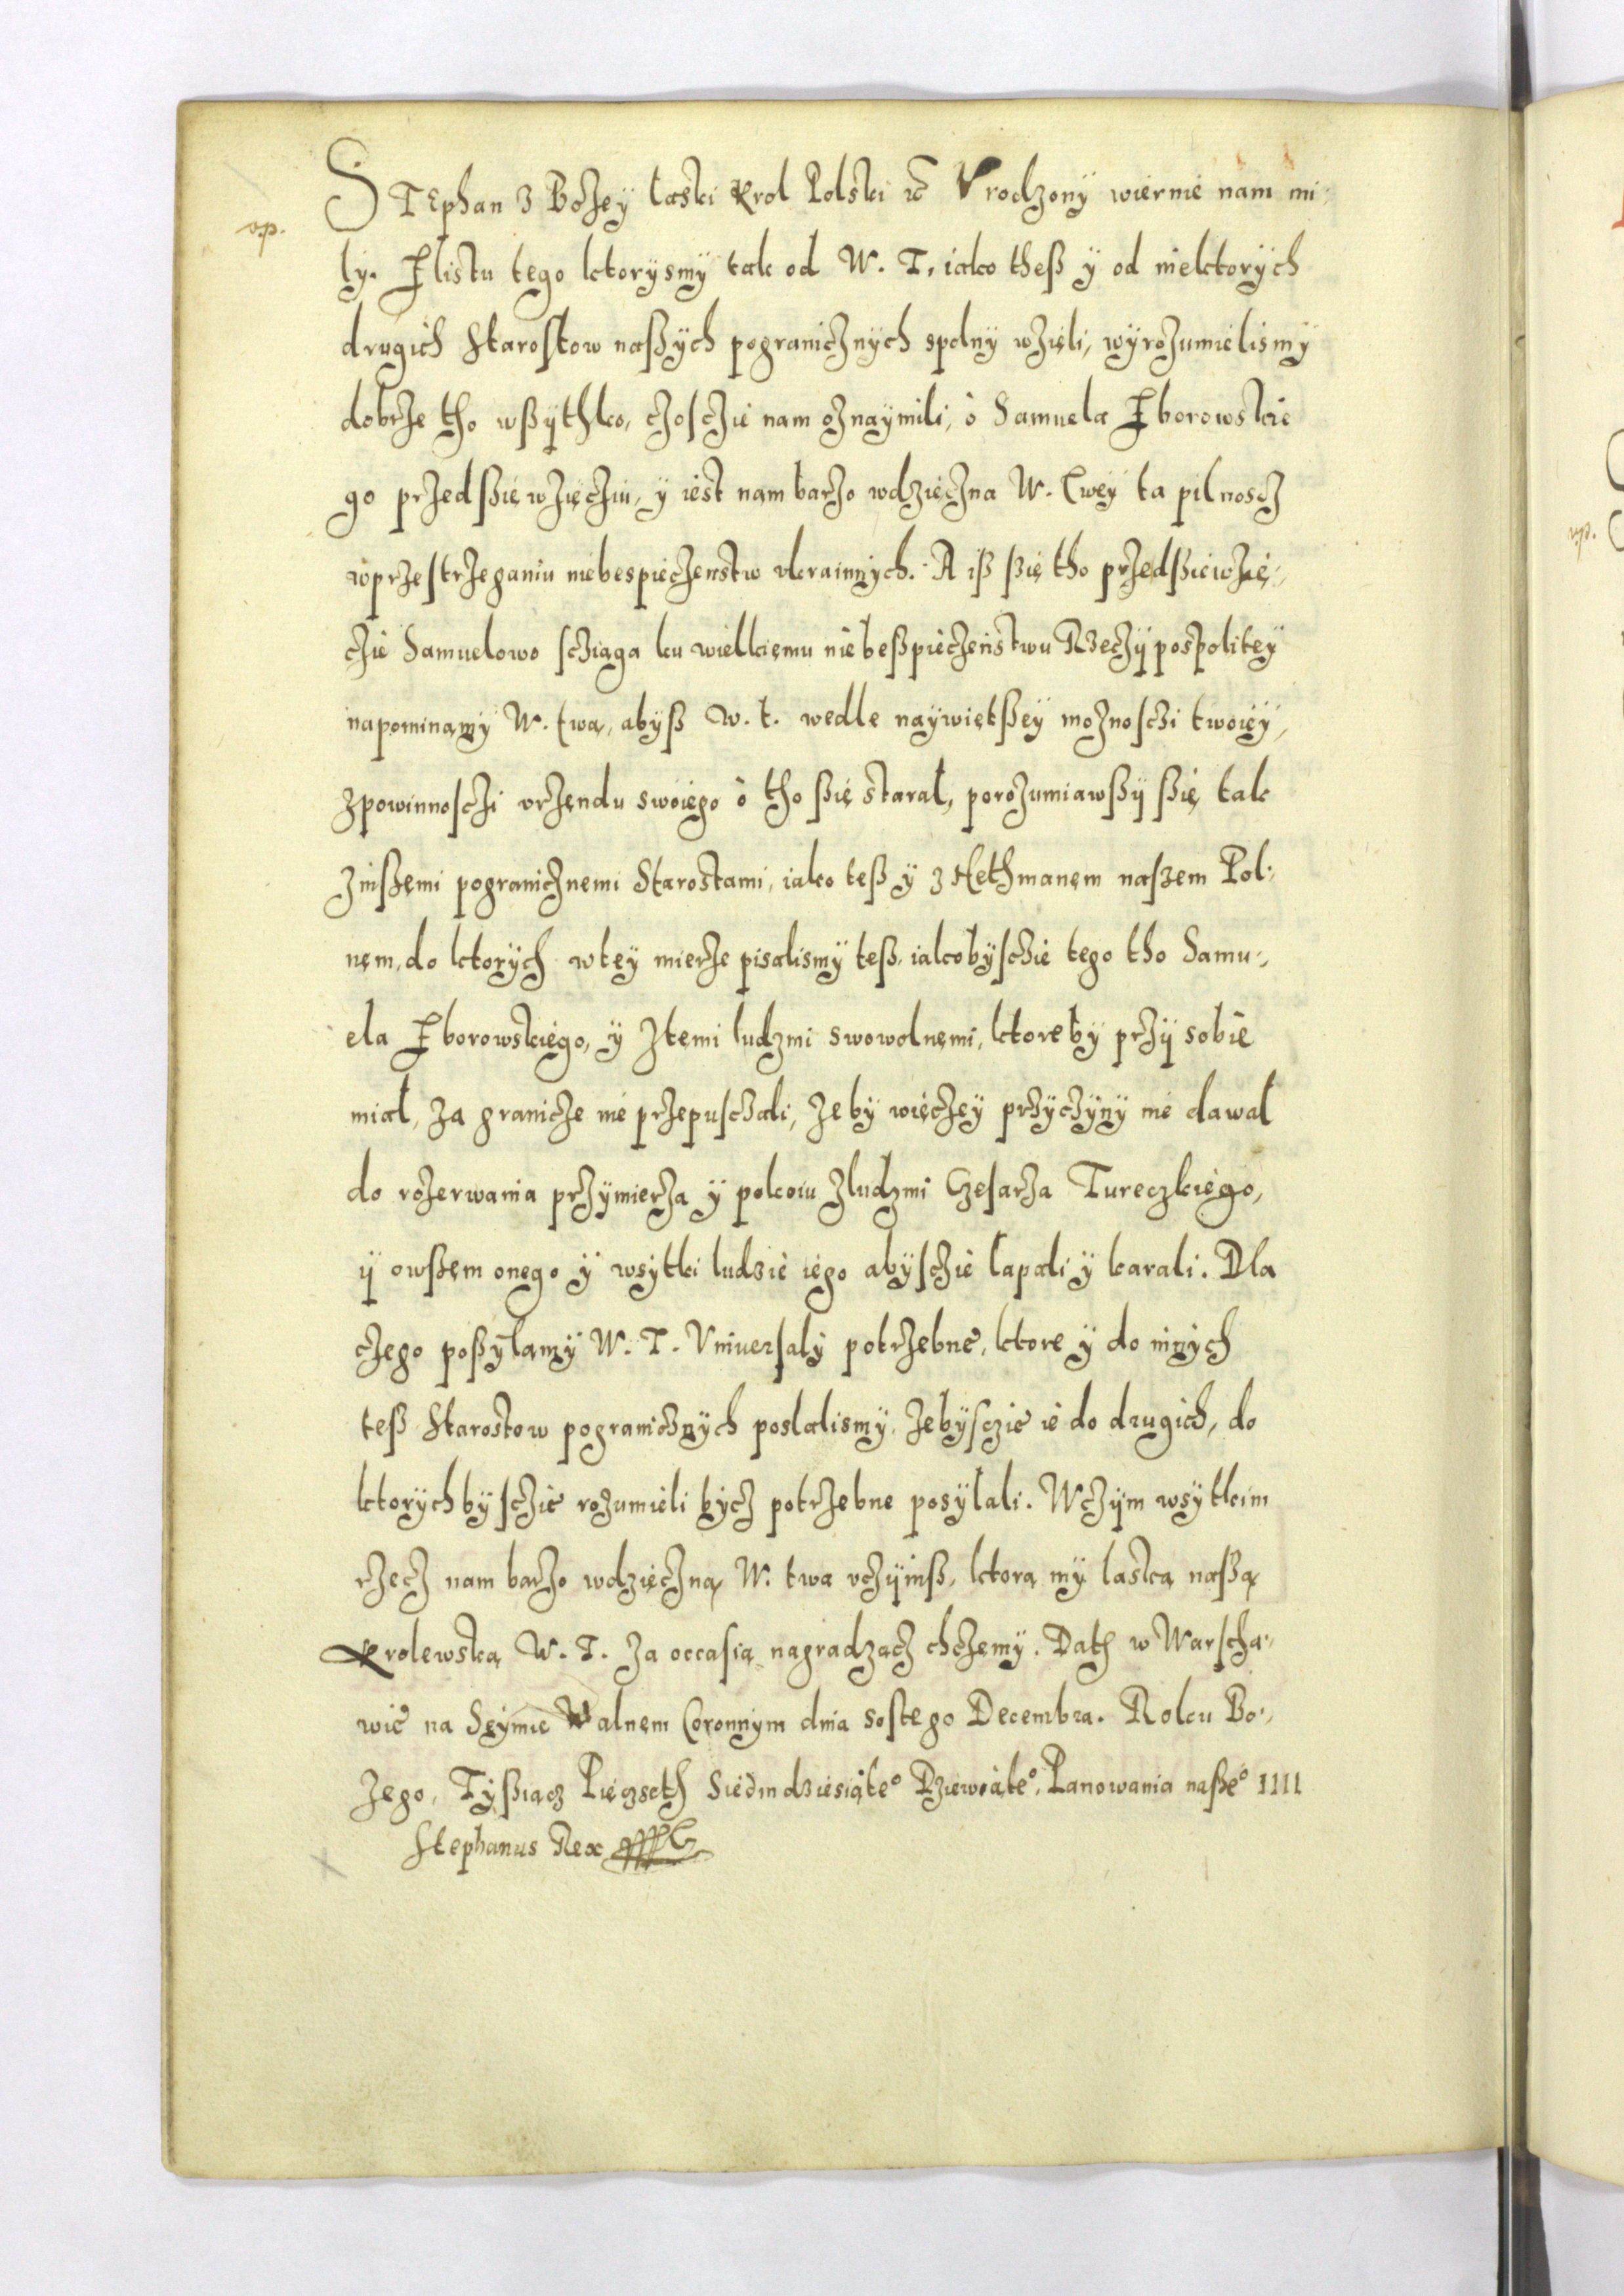 STEphan z Bozey łaski Krol Polski etc̃ Vrodzony wiernie nam mi-
vp.
ły. Z listu tego ktorysmy tak od W. T. iako theß y od niektorych
drugich Starostow naßych pogranicznych spolny wzięli, wyrozumielismy
dobrze tho wßythko, czosczie nam oznaymili, ò Samuela Zborowskie
go przedßięwzięcziu, y iest nam barzo wdzięczna W. Twey ta pilnoscz
wprzestrzeganiu niebespieczenstw vkrainnych. A iß ßię tho przedßiewzię-
czie Samuelowo scziąga ku wielkiemu niebeßpieczeństwu Rzeczy pospolitey
napominamy W. twą, abyß w. t. wedle naywiętßey moznosczi twoiey,
zpowinnosczi vrzendu swoiego ò tho ßię starał, porozumiawßy ßię tak
zinßemi pogranicznemi Starostami, iako teß y z Hethmanem naszem Pol-
nem, do ktorych wtey mierze pisalismy teß, iakobysczie tego tho Samu-
ela Zborowskiego, y ztemi ludzmi swowolnemi, ktoreby przy sobie
miał, za granicze nie przepusczali, zeby więczey przyczyny nie dawał
do rozerwania przymierza y pokoiu zludzmi Czesarza Tureczkiego,
y owßem onego y wsytki ludzie iego abysczie łapali y karali. Dla
czego poßyłamy W. T. Vniuersały potrzebne, ktore y do inych
teß Starostow pogranicznych posłalismy, zebysczie ie do drugich, do
ktorychbysczie rozumieli bycz potrzebne posyłali. Wczym wsytkim
rzecz nam barzo wdzięczną W. twa vczyniß, ktorą my łaską naßą
Krolewską W. T. za occasią nagradzacz chczemy. Dath w Warscha-
wie na Seymie Walnem Coronnym dnia sostego Decembra. Roku Bo-
zego, Tyßiącz Pięczseth Siedmdziesiąteº Dziewiąteº, Panowania naßeº IIII
Stephanus Rex